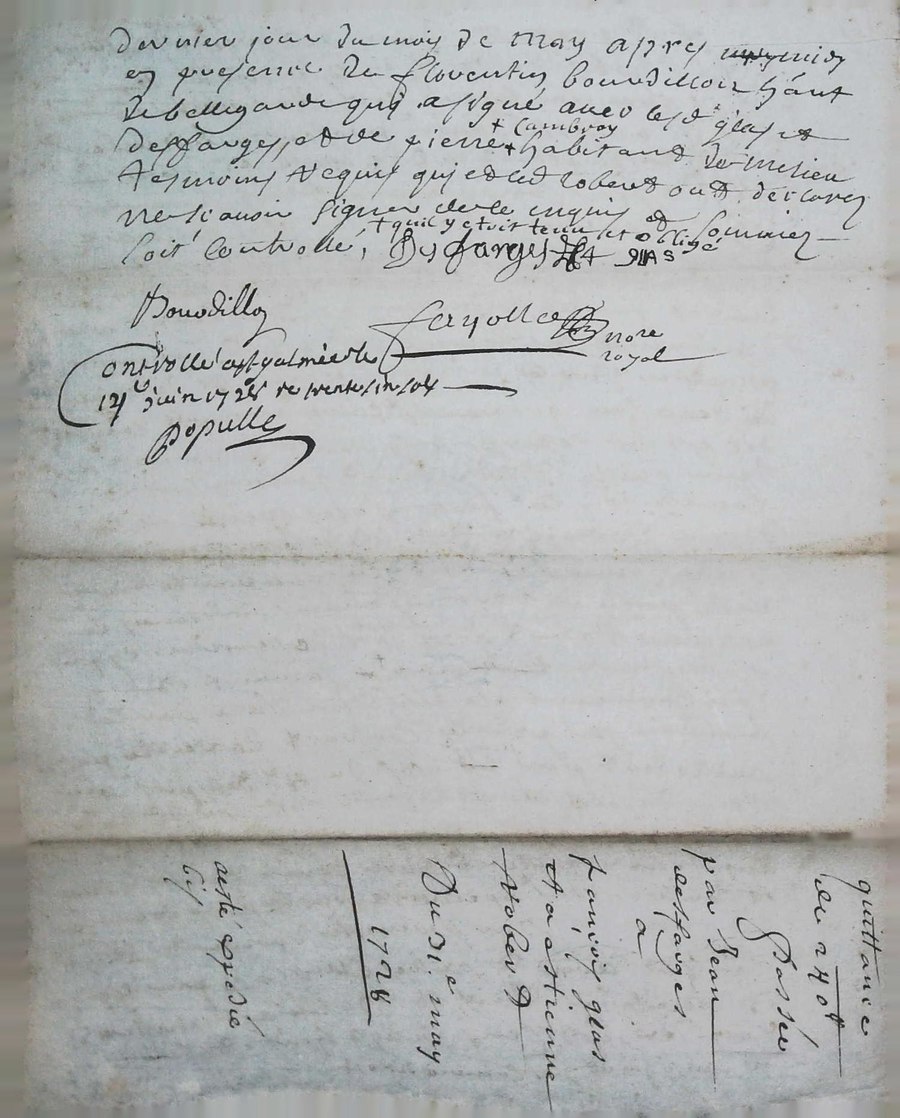 dernier jour du mois de may apres midy
en presence de florentin bourdillon hãnt
de bellegarde quy a signé avec lesd glas et
Desfarges, et de pierre + habitant de
+ Cambray
tesmoins requis qui et led robert ont déclarez
ne sçavoir signer de ce enquis et sommiez
soit controllé, + quil y etoit tenu et obligé
Desfarges glas
Bourdillon
fayolle
nore
royal
Controllé a st galmier le
12e Juin 1728 re trente six sols
Populle
quittance
de 240 lt
Passée
par Jean
desfarges
a
françois glas
et a estienne
Robert
Du 31.e may
1728
acte expedié
bis